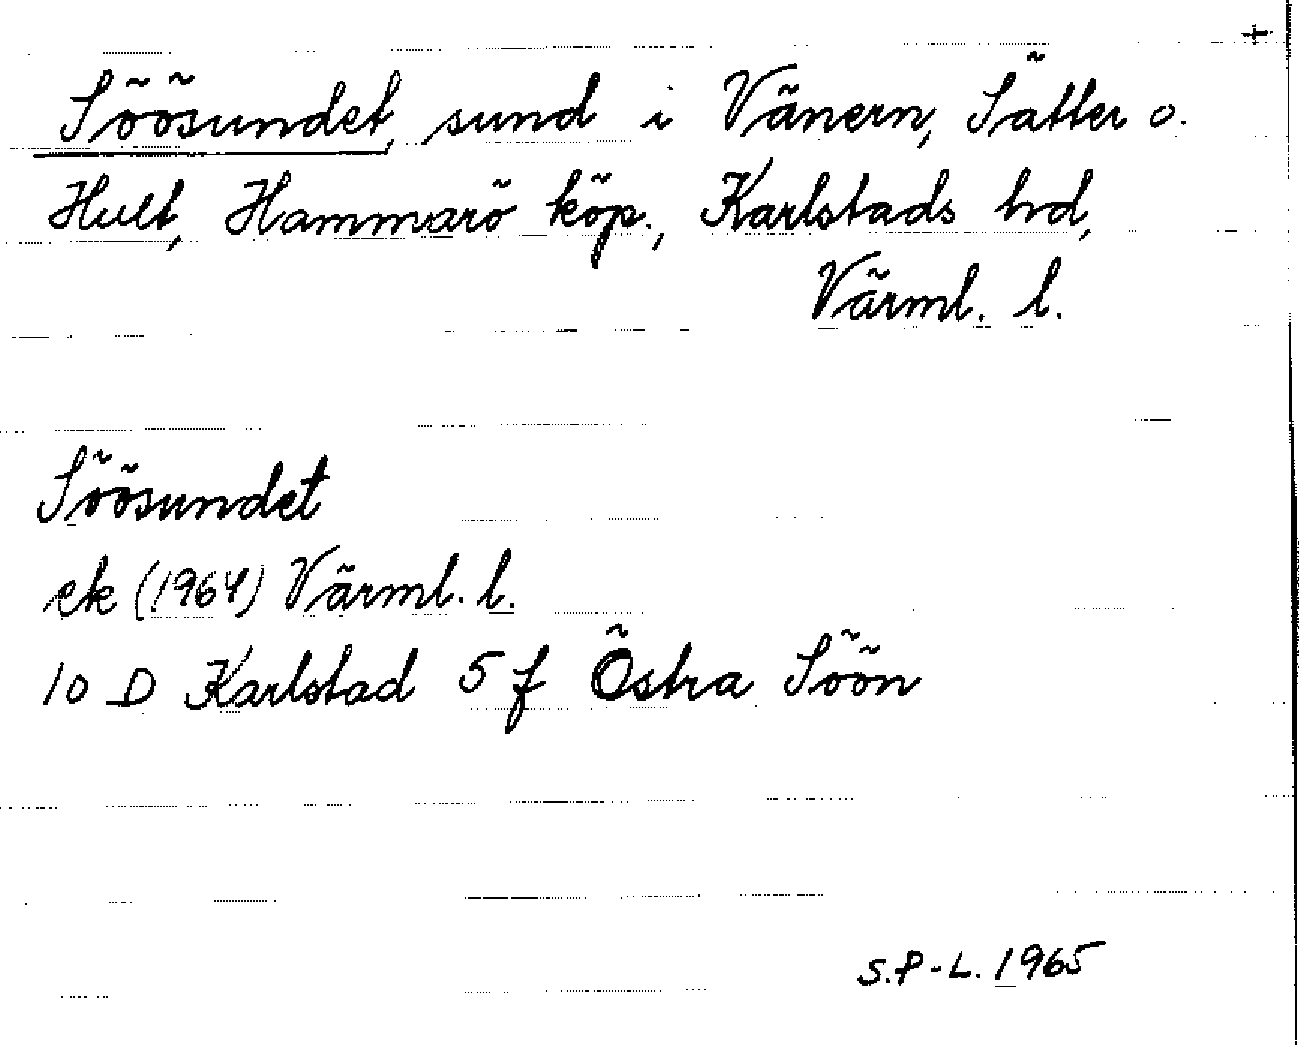 Söösundet, sund i Vänern, Sätter o.
Hult, Hammarö köp., Karlstads hd,
Värml. l.
Söösundet
ek (1964) Värml. l.
10 D Karlstad 5 f Östra Söön
S.P-L. 1965